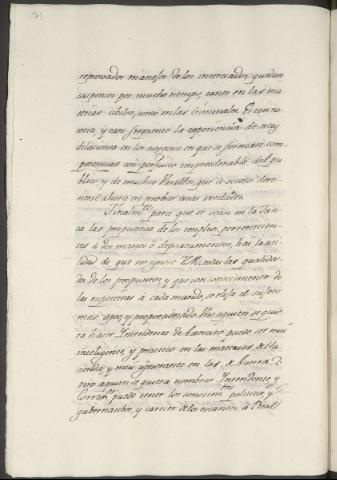 reprovados manejos de los interesados, quedan
suspensos por mucho tiempo, tanto en las ma
terias civiles, como en las Criminales. Es tan no
toria, y tan frequente la experiencia de estas
dilaciones en los negocios en que se forman com
petencias con perjuicio imponderable del pu
blico, y de muchos Parti es, que es ocioso dete
nerse ahora en probar mas verdades.
Finalm.te para que se vean en la Jun
ta las propuestas de los empleos, pertenecien
tes à dos manos ò departamentos, hai la uti
lidad de que no ignore V.M. todas las qualida
des de los propuestos, y que con conocimiento de
las respectivas à cada mando, se elija el sujeto
mas apto, y proporcionado. Uno aquien se quie
ra hacer Yntendente de Exercito puede ser mui
inteligente, y practico en las materias de Ha
cienda, y mui ignorante en las de Guerra.
Otro aquien se quiera nombrar Yntendente, y
Correx.or puede tener los conocim.tos politicos, y
gubernativos, y carecer de los tocantes à Real